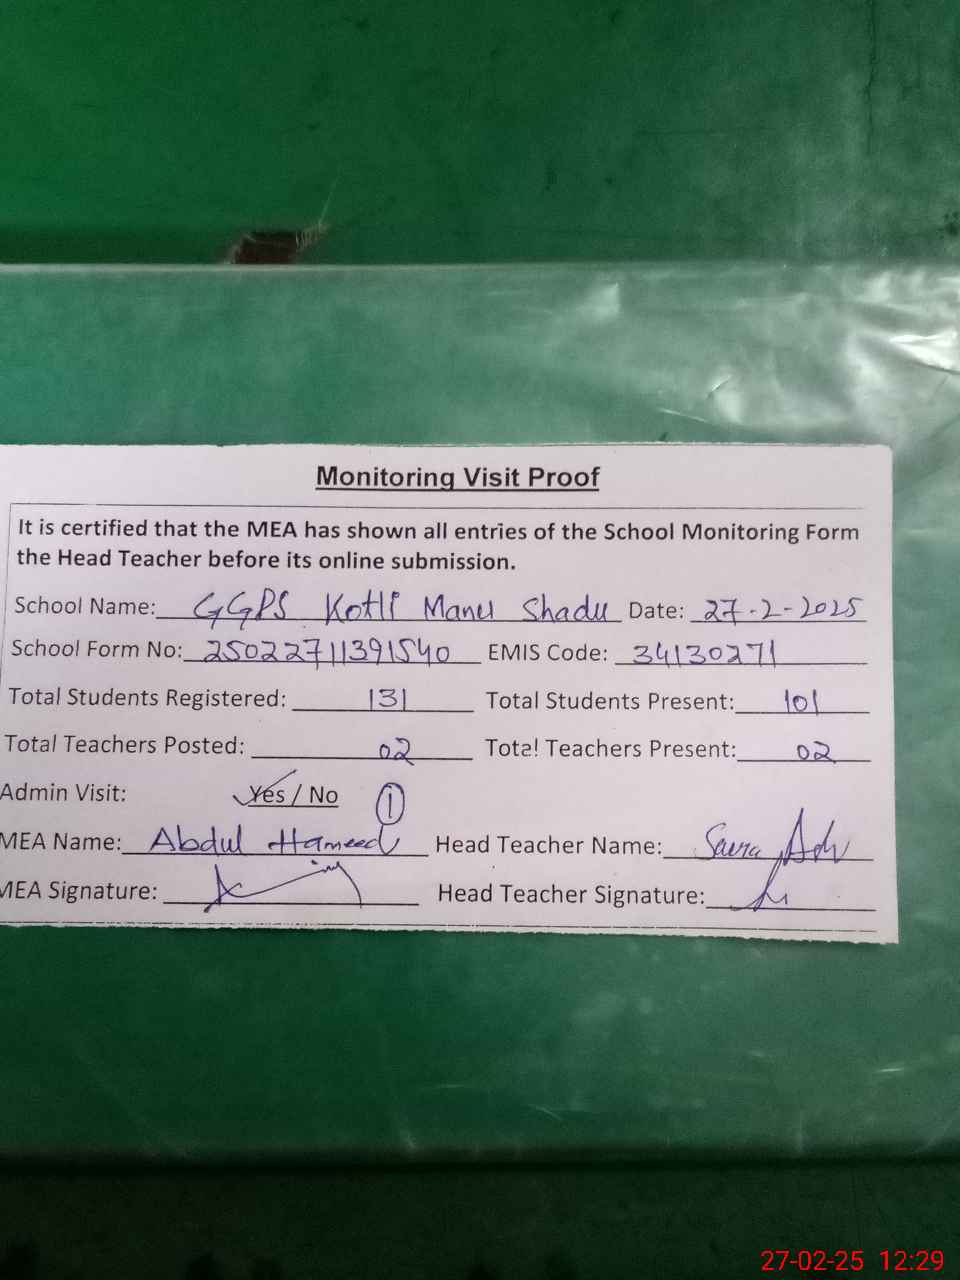 Monitoring Visit Proof
It is certified that the MEA has shown all entries of the School Monitoring Form
the Head Teacher before its online submission.
School Name: GGPS Kotli Manu Shadu Date: 27-2-2025
School Form No: 25022711391540 EMIS Code: 34130271
Total Students Registered: 131 Total Students Present: 101
Total Teachers Posted: 02 Total Teachers Present: 02
Admin Visit: Yes / No 1
MEA Name: Abdul Hameed Head Teacher Name:
MEA Signature: Head Teacher Signature:
27-02-25 12:29